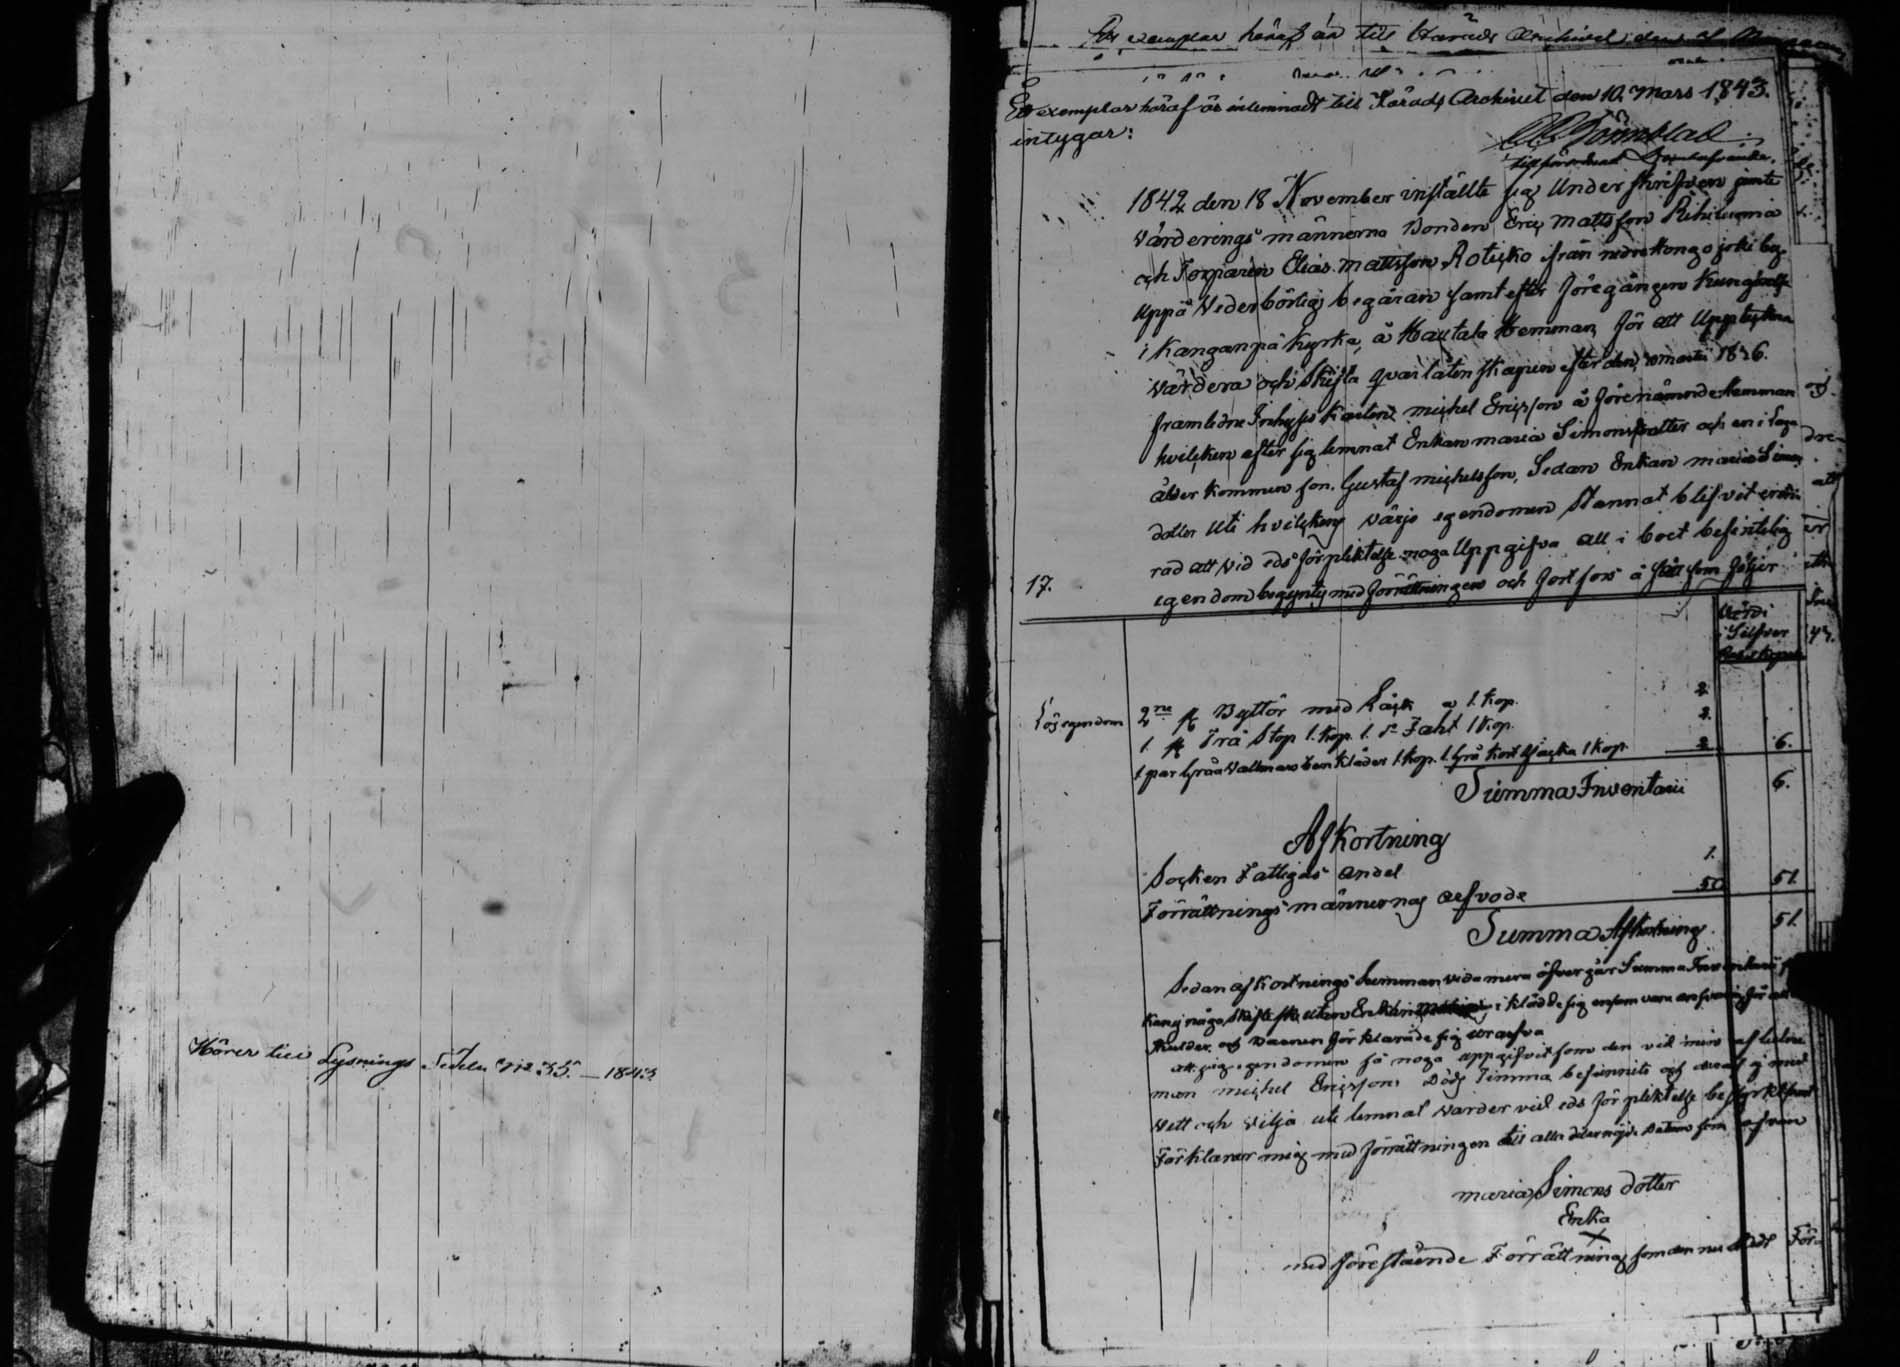 Hörer till Lysnings Sedeln No 35. — 1843
Ett exemplar häraf är till Härads Archivet den
Ett exemplar häraf är inlemnadt till Härads Archivet den 10. Mars 1843.
intygar:
1842 den 18 November instälte sig Underskrifven jemte
Värderings männerna Bonden Eric Mattsson Rihiluoma
och Torparen Elias Mattsson Roticko ifrån nedre Kongojoki by
uppå Vederbörligs begäran samt efter Föregången Kungörelse
i Kanganpä kyrka, å Hautala Hemman, för att Uppteckna
värdera och Skifta qvarlåtenskapen efter den
framledne Inhyses Karlen Michel Ericsson å förenämnde hemman
hvilcken efter sig lemnat Enkan Maria Simonsdotter och en i Laga
ålder kommen son. Gustaf Michelsson, Sedan Enkan Maria Simons
dotter Uti hvilckens värjo egendomen Stannat blifvit
rad att vid eds förpliktelse noga Uppgifva all i boet befintelig
17. egendom begyntes med förrättningen och fortfors å sätt som följer
Värde
i Silfver
Lösegendom 2ne st Byttor med Låck a 1 kop. 2.
1 st Trä Stop 1. kop. 1. d:o Faht 1 kop. 2.
1 par Gråa Vallmans benkläder 1. kop. 1. Grå kort Jacka 1 kop. 2 6.
Summa Inventarii 6.
Afkortning
Socken Fattigas andel 1.
Förrättnings männernas arfvode 50 51.
Summa Afkortning 51.
Sedan afkortnings Summan vida mera öfvergår Summa Inventarii
kan ej någo Skifte ske utan Enkan iklädde sig ensam vara ansvarig för
skulder och
att egendomen så noga uppgifvit som den vid min aflidne
man Michel Ericssons Döds Timma befinnits och med
Vett och Vilja ute lemnat varder vid eds förpliktelse
Förklarar mig med förrättningen till alla delar nöjd Datum som ofvan
Maria Simons dotter
Enka
X
med förestående Förrättning som den nu
För